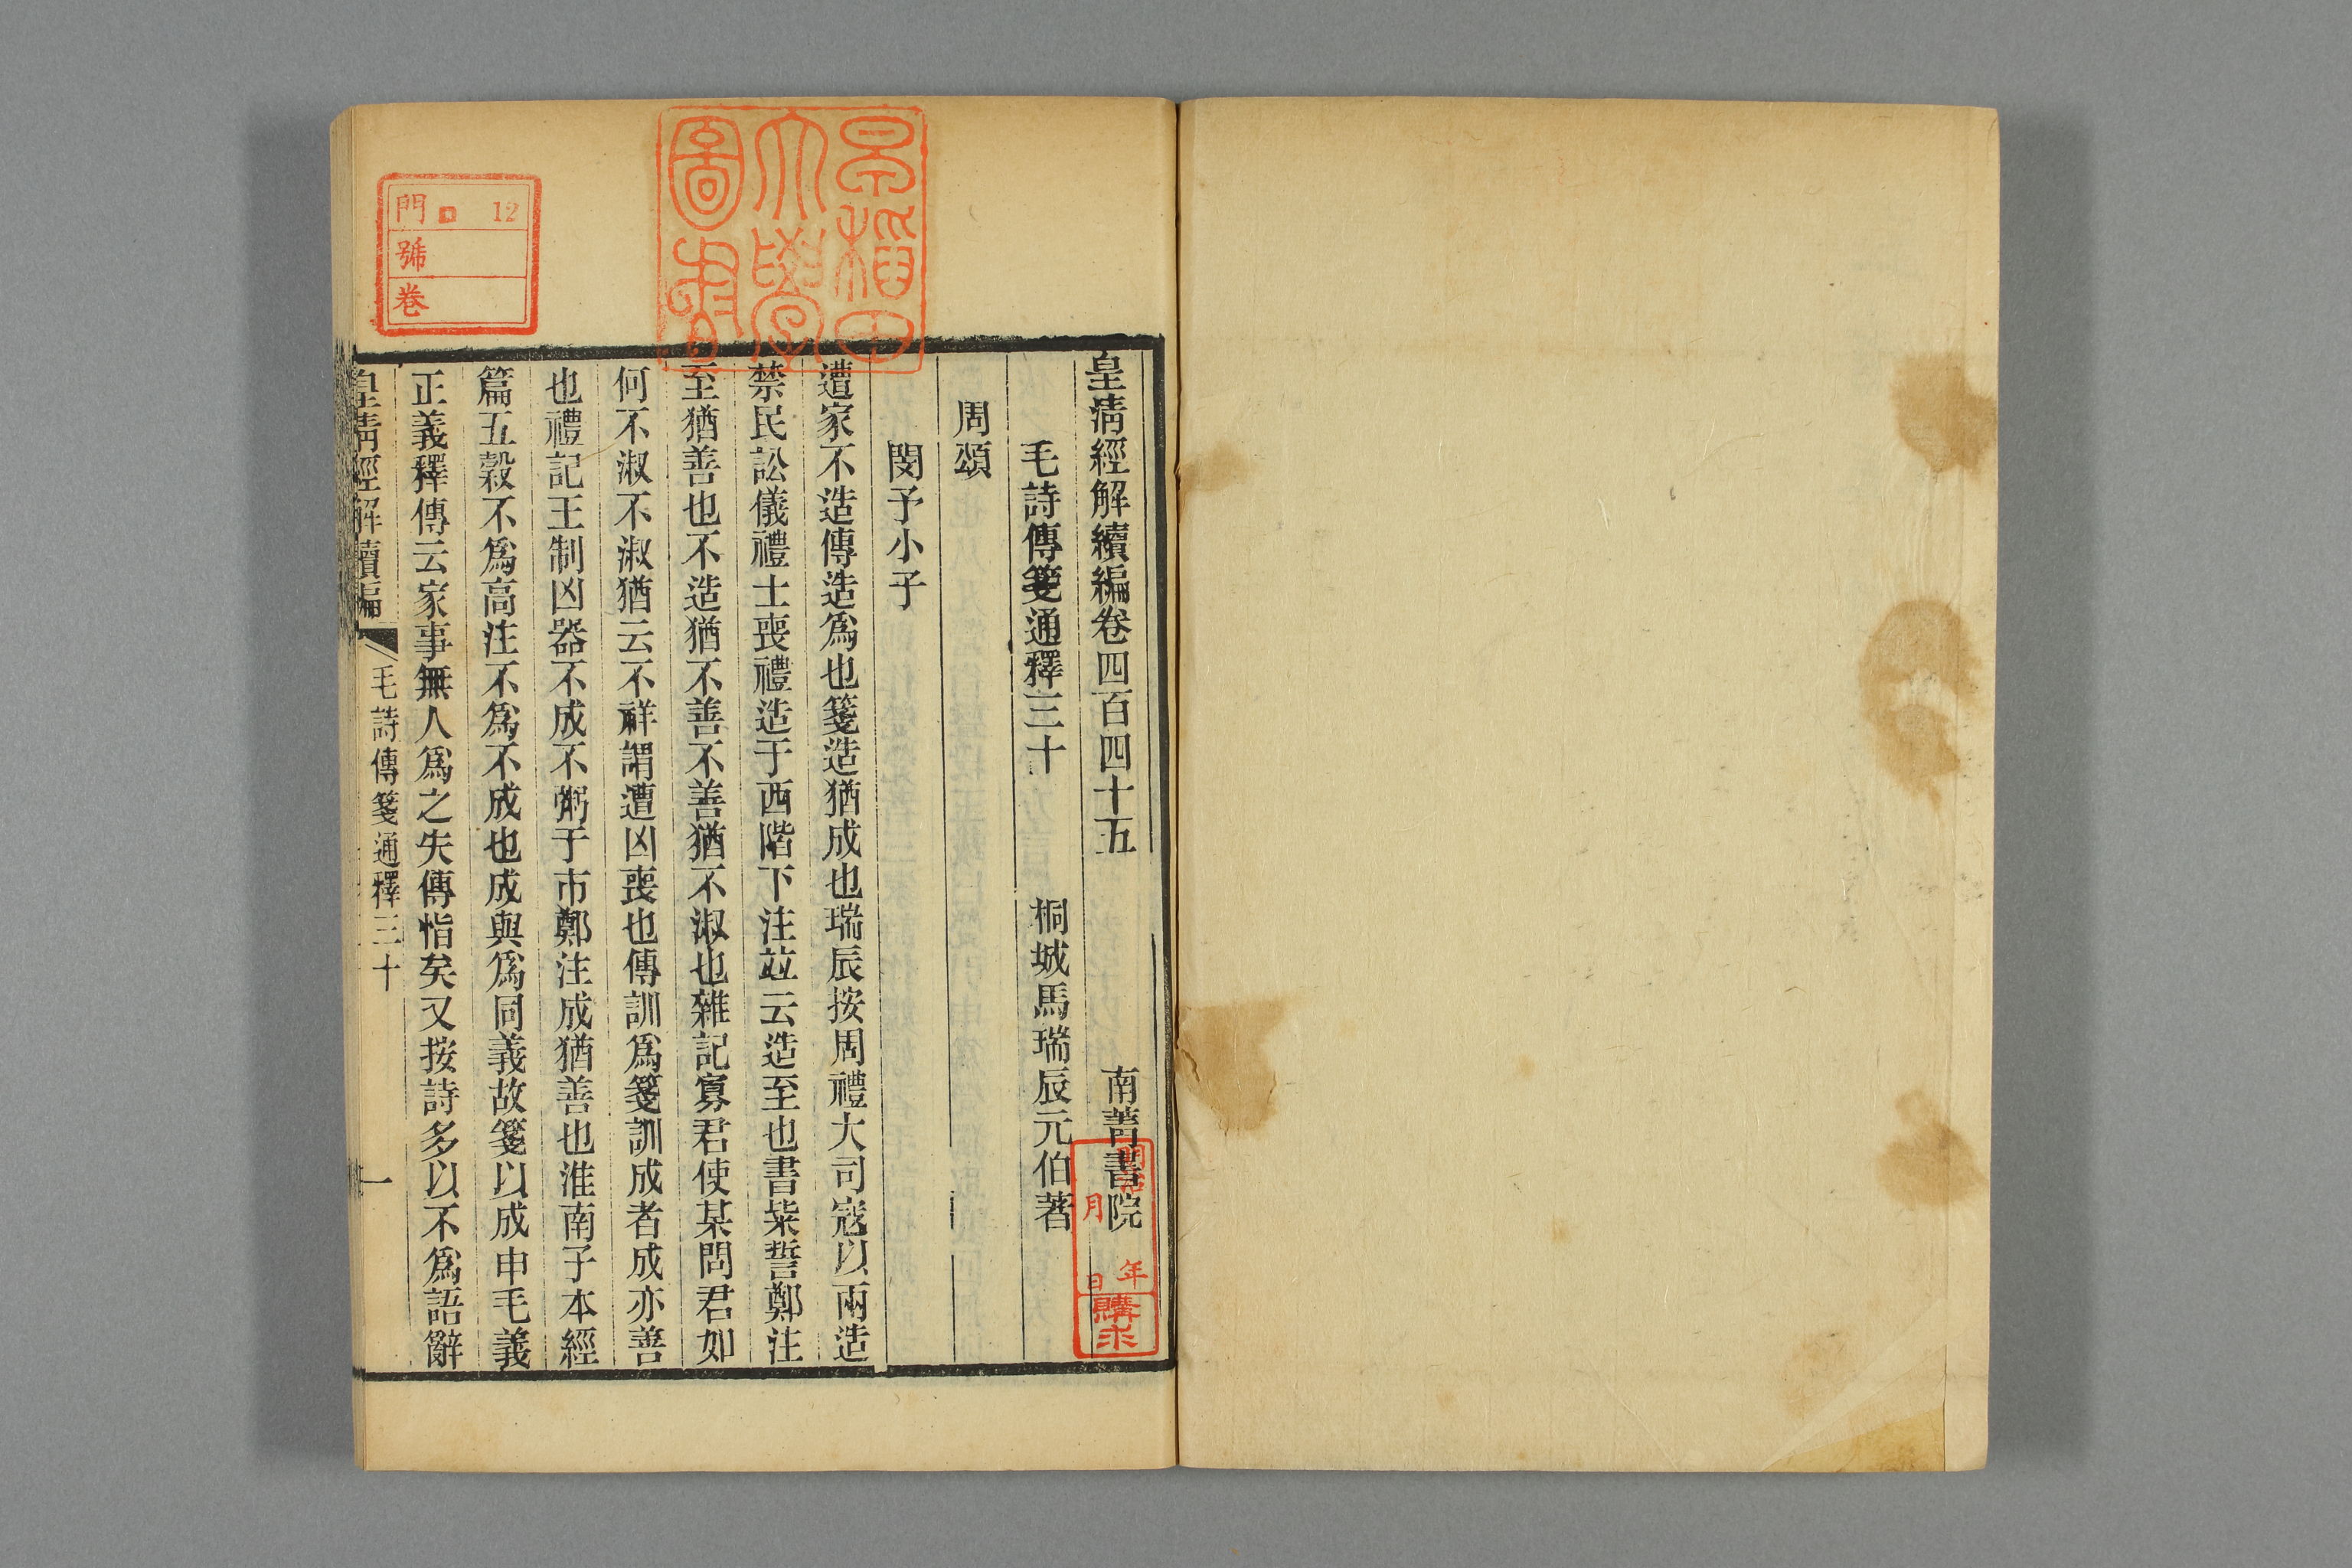 皇清經解續編卷四百四十五
南菁書院
毛詩傳箋通釋三十
桐城馬瑞辰元伯著
周頌
閔予小子
遭家不造傳造爲也箋造猶成也瑞辰按周禮大司寇以兩造
禁民訟儀禮士喪禮造于西階下注竝云造至也書粊誓鄭注
至猶善也不造猶不善不善猶不淑也雜記寡君使某問君如
何不淑不淑猶云不祥謂遭凶喪也傳訓爲箋訓成者成亦善
也禮記王制凶器不成不粥于市鄭注成猶善也淮南子本經
篇五穀不爲高注不爲不成也成與爲同義故箋以成申毛義
正義釋傳云家事無人爲之失傳恉矣又按詩多以不爲語辭
皇清經解續編
毛詩傳箋通釋三十
一
早稻田
大學
圖書
門 12
號
卷
明治
年
月
日
購求